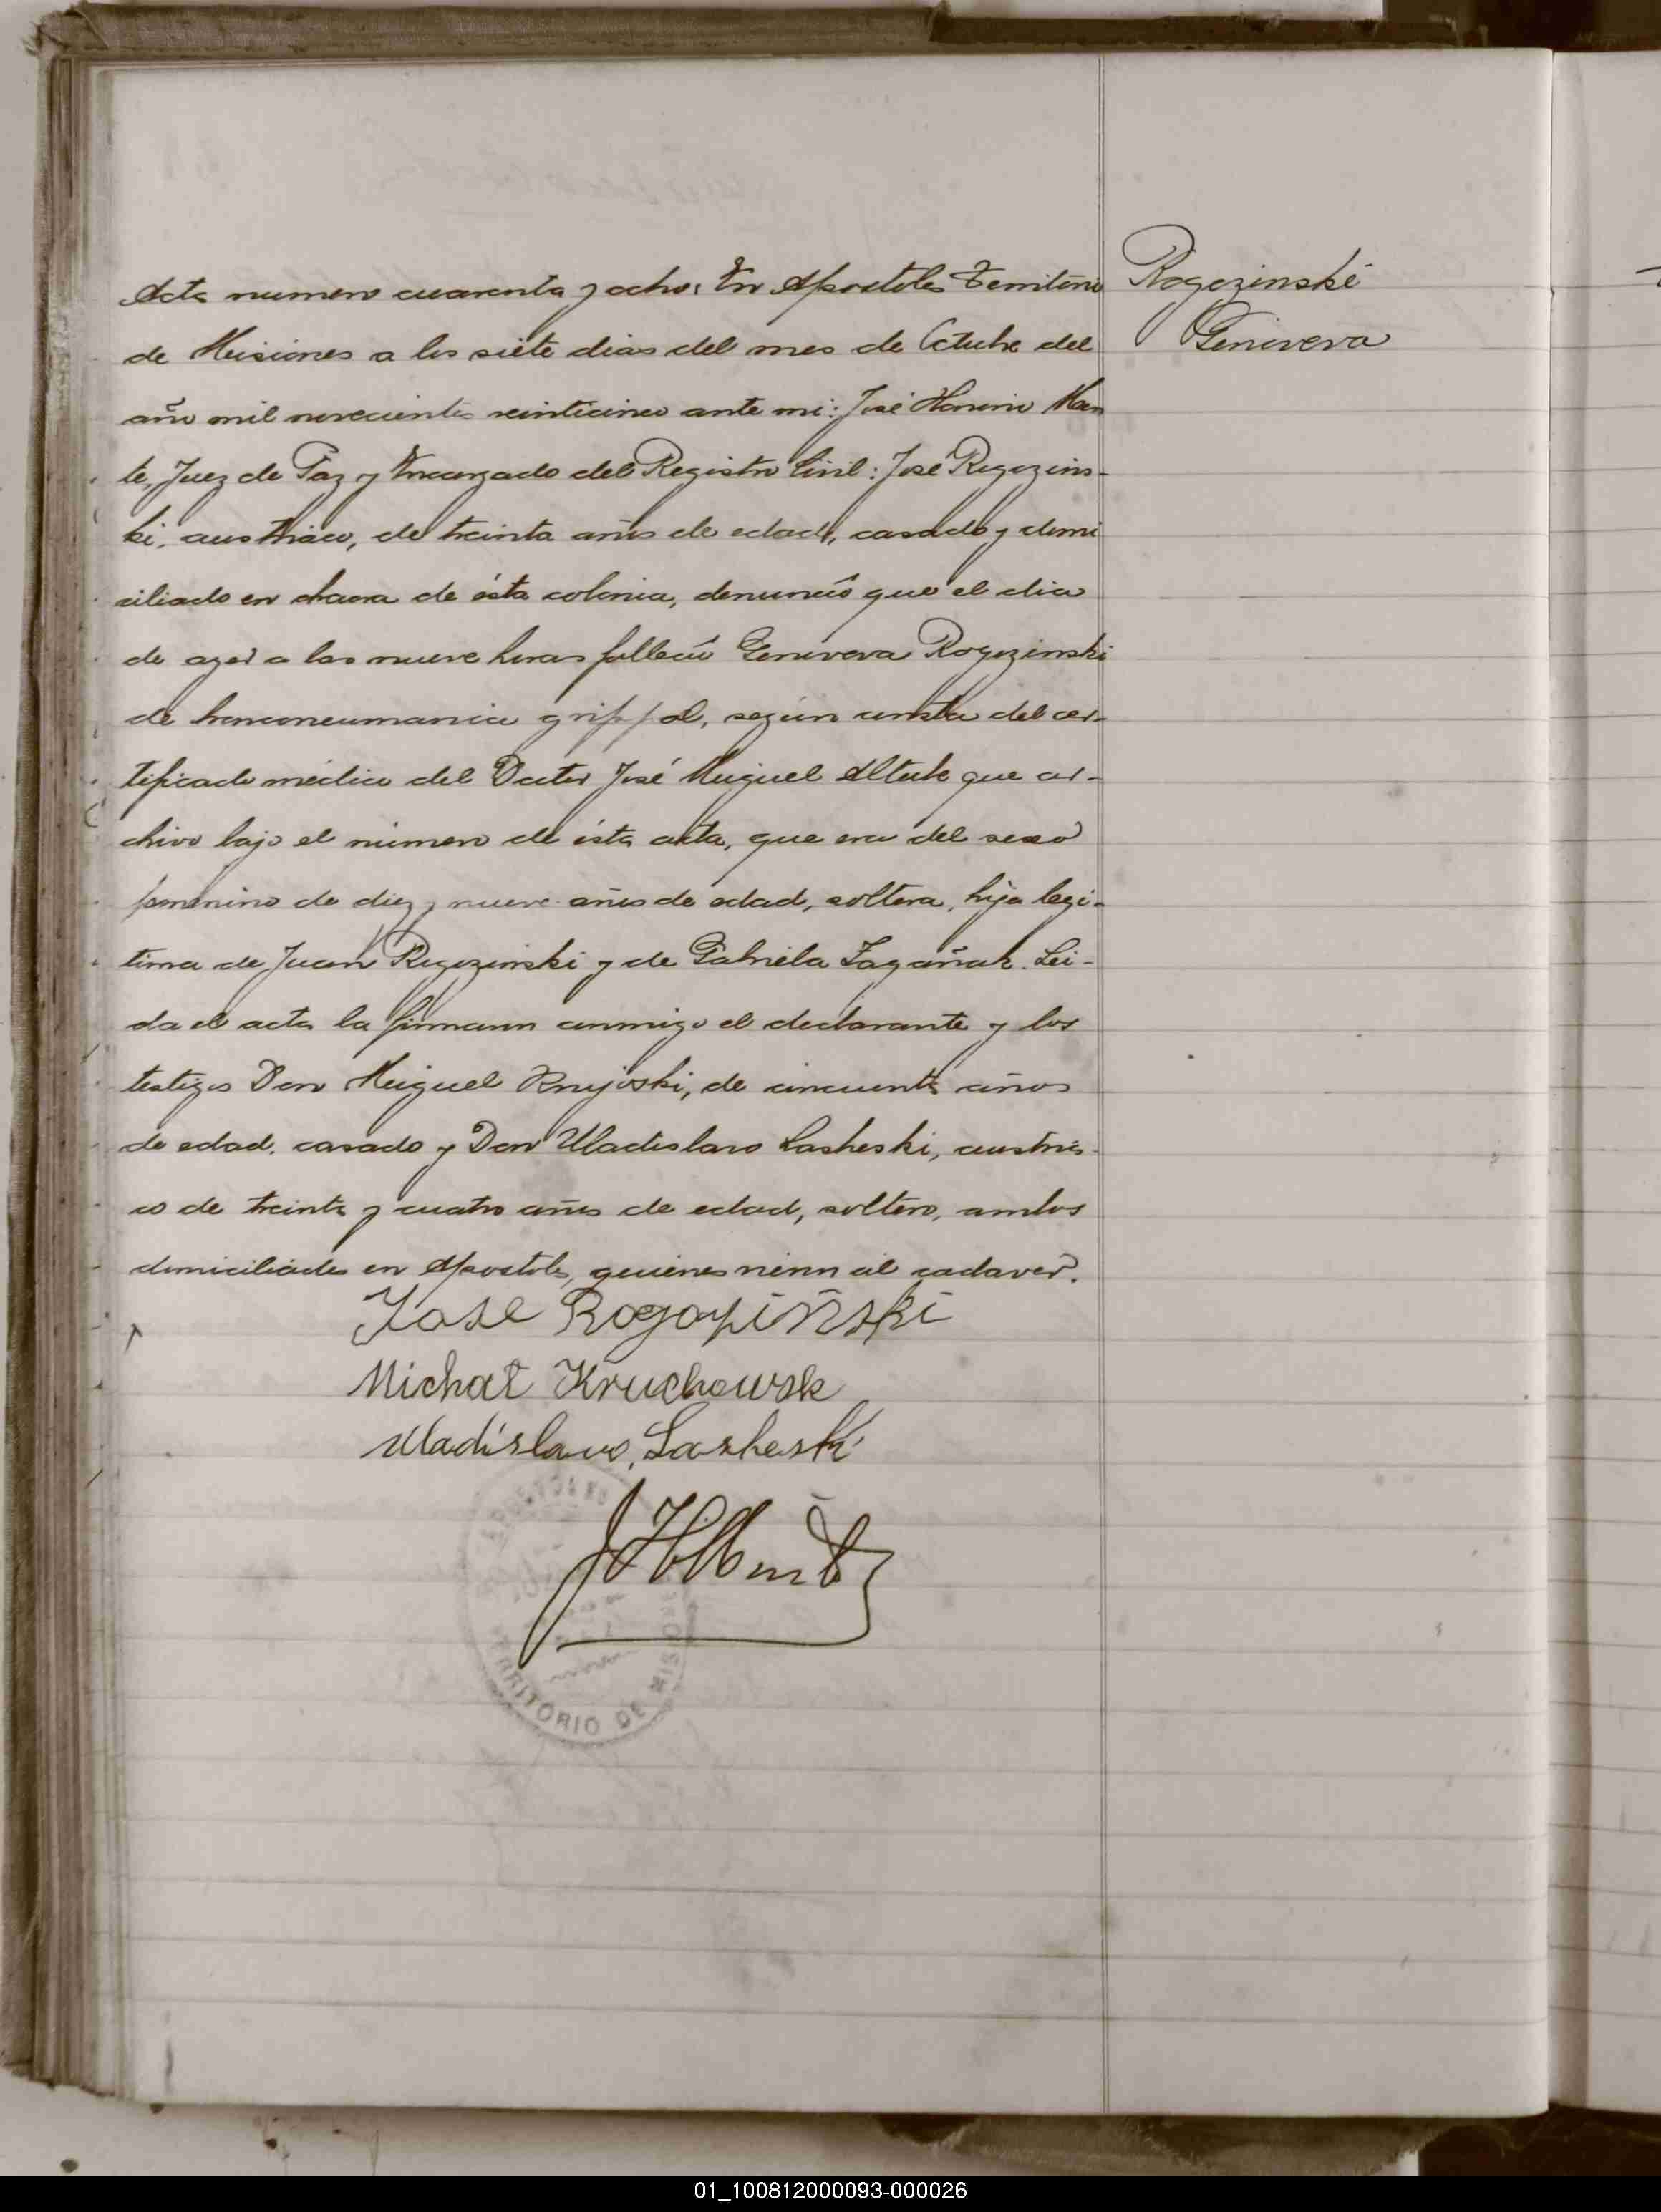 Rogozinski
Genoveva
Acta numero cuarenta y ocho: En Apostoles Territorio
de Misiones a los siete dias del mes de Octubre del
año mil novecientos veinticinco ante mi: José Honorio Man
te, Juez de Paz y Encargado del Registro Civil: José Rogozins-
ki, austriaco, de treinta años de edad, casado y domi
ciliado en chacra de ésta colonia, denunció que el dia
de ayer a las nueve horas falleció Genoveva Rogozinski
de bronconeumania grippal, según consta del cer-
tificado médico del Doctor José Miguel que ar-
chivo bajo el número de ésta acta, que era del sexo
femenino de diez y nueve años de edad, soltera, hija legi-
tima de Juan Rogozinski y de Gabriela Zagañah. Lei-
da el acta la firmaron conmigo el declarante y los
testigos Don Miguel Krujoski, de cincuenta años
de edad, casado y Don Uladislavo Lasheski, austria-
co de treinta y cuatro años de edad, soltero, ambos
domiciliados en Apostoles, quienes vieron el cadaver.
Jose Rogoziński
Michał Kruchowsk
Uladislavo, Lasheski
TERRITORIO DE MISIONES
01_100812000093-000026